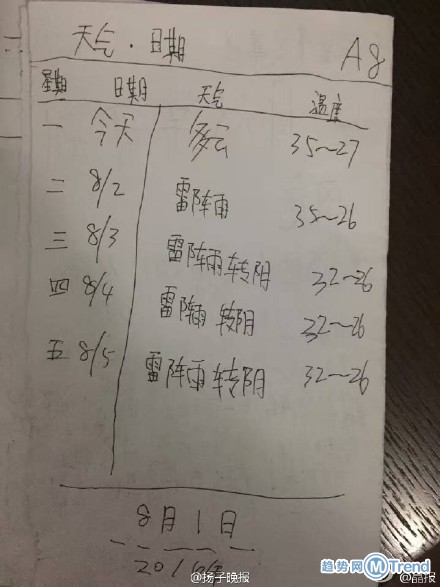 天气·日期 A8
星期 日期 天气 温度
一 今天 多云 35~27
二 8/2 雷阵雨 35~26
三 8/3 雷阵雨转阴 32~26
四 8/4 雷阵雨转阴 32~26
五 8/5 雷阵雨转阴 32~26
8月1日
@扬子晚报
趋势网 MTrend
@晶报